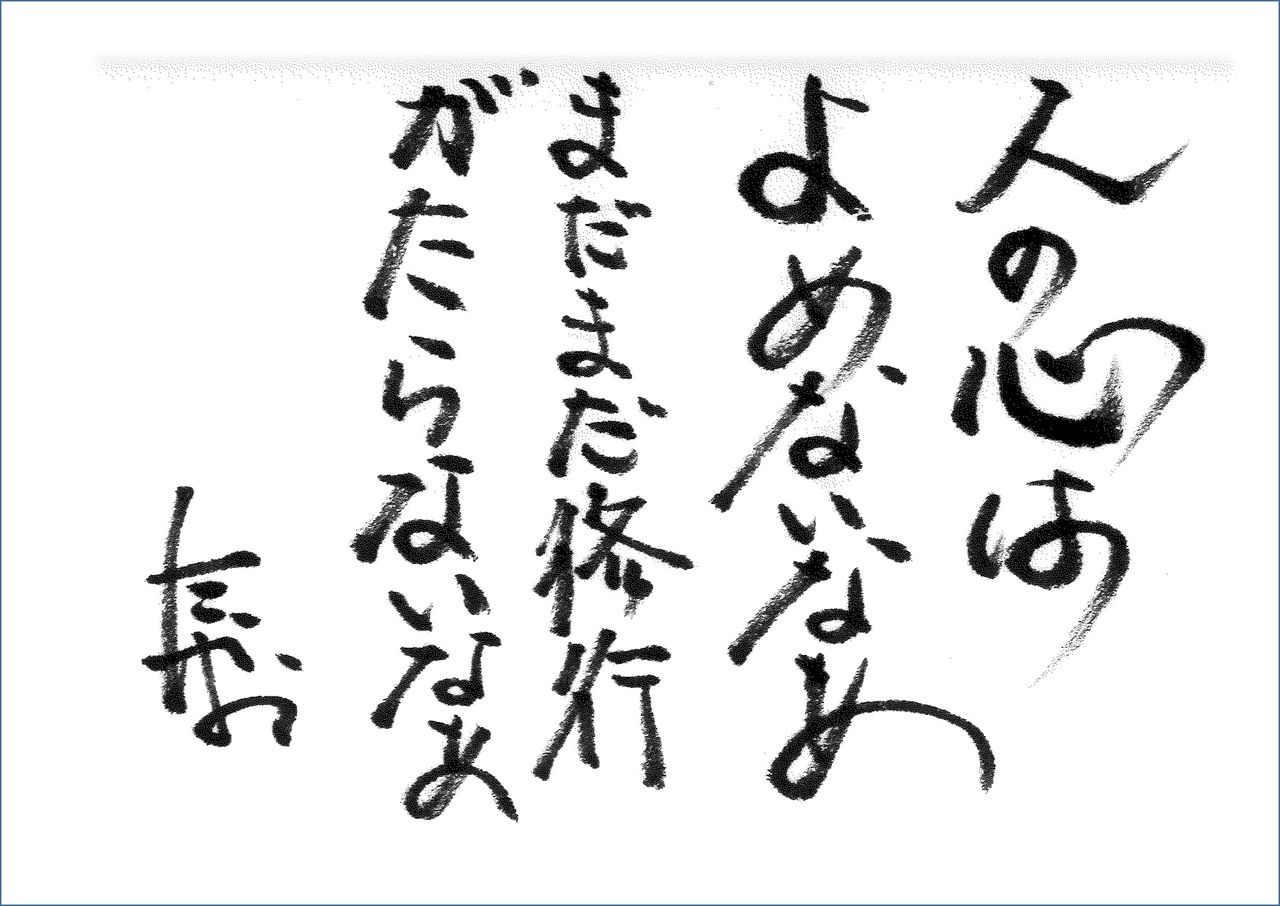 人の心は
よめないなあ
まだまだ修行
がたらないなあ